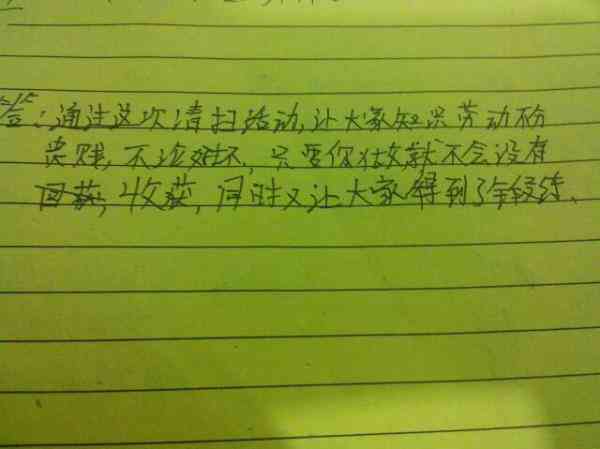 答：通过这次清扫活动,让大家知识劳动不分
贵贱,不论好坏,只要你做,就不会没有
回获,收获,同时又让大家得到了锻